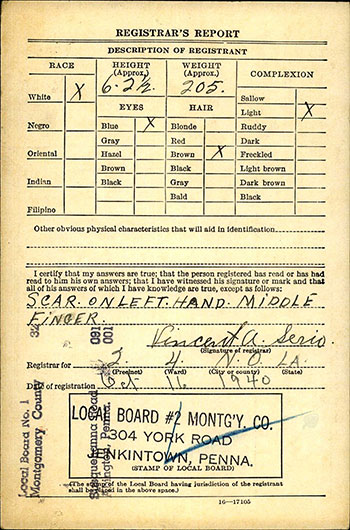 REGISTRAR'S REPORT
DESCRIPTION OF REGISTRANT
RACE
HEIGHT
(Approx.)
WEIGHT
(Approx.)
COMPLEXION
White X
6-2½
205.
Sallow
EYES
HAIR
Light X
Negro
Blue X
Blonde
Ruddy
Gray
Red
Dark
Oriental
Hazel
Brown X
Freckled
Brown
Black
Light brown
Indian
Black
Gray
Dark brown
Bald
Black
Filipino
Other obvious physical characteristics that will aid in identification
I certify that my answers are true; that the person registered has read or has had
read to him his own answers; that I have witnessed his signature or mark and that
all of his answers of which I have knowledge are true, except as follows:
SCAR. ON LEFT. HAND. MIDDLE
FINGER.
32
091
001
Vincent A. Serio
(Signature of registrar)
Registrar for 2 4 N. O. LA.
(Precinct) (Ward) (City or county) (State)
Date of registration Oct 16 1940
Local Board No. 1
Montgomery County
Susquehanna Road
Abington, Penna.
LOCAL BOARD #2 MONTG'Y. CO.
304 YORK ROAD
JENKINTOWN, PENNA.
(STAMP OF LOCAL BOARD)
(The stamp of the Local Board having jurisdiction of the registrant
shall be placed in the above space.)
16—17105